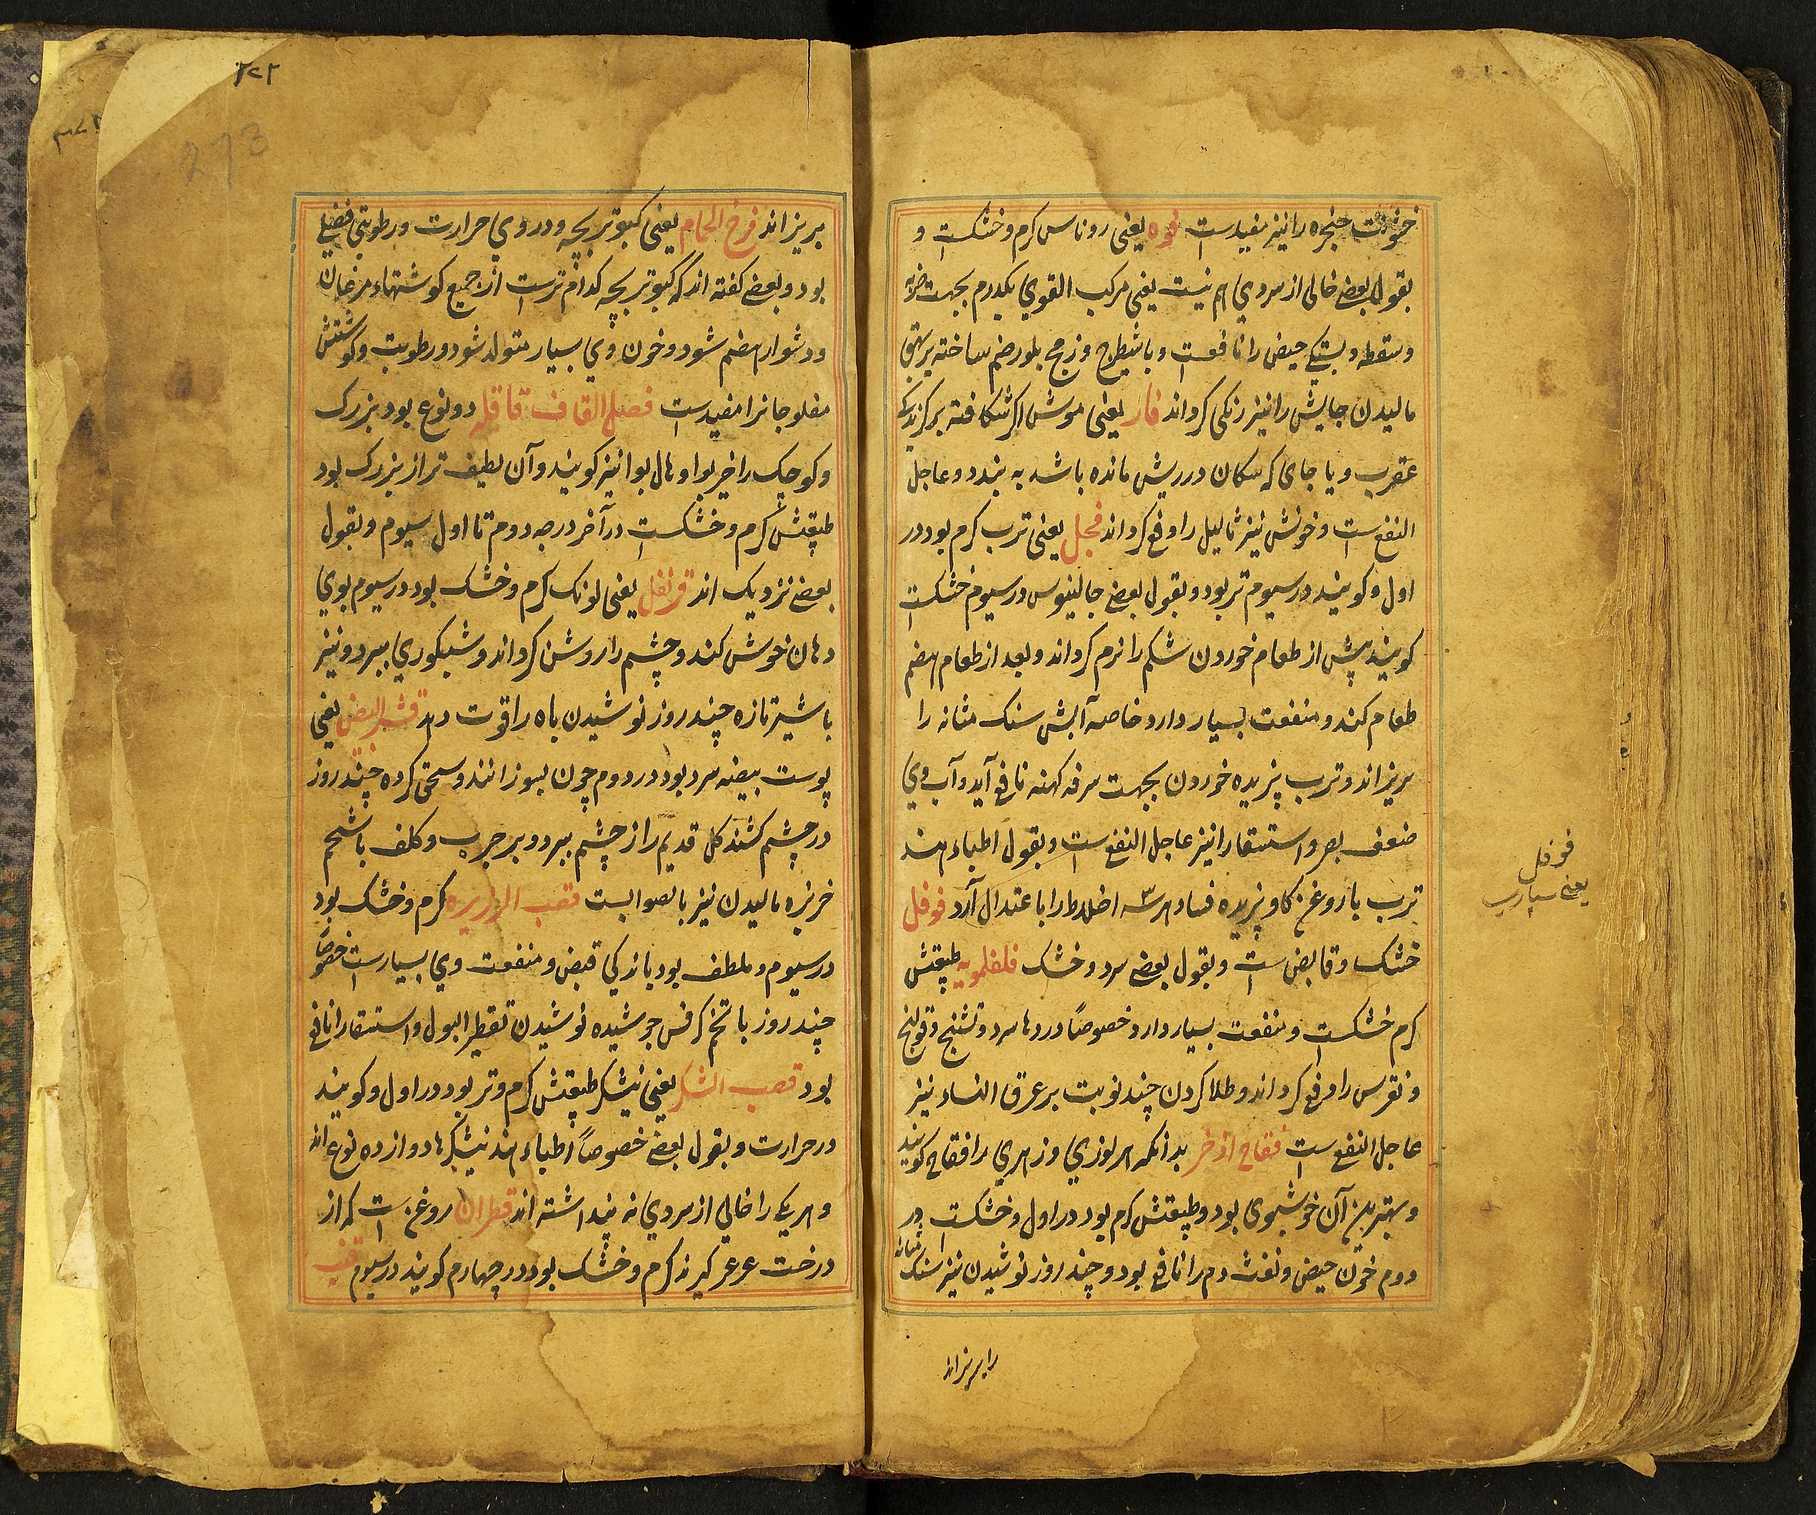 خشونت حنجره را نیز مفیدست فوه یعنی روناس کرم و خشکست و
بقول بعضی خالی از سردی هم نیست یعنی مرکب القوی یکدرم بجهت ضربه
و سقطه و بستکی حیض را نافعست و با شیطرج و زجج بلورهم ساخته بر بهق
مالیدن جایش را نیز زنکی کرداند فار یعنی موش اکر شکافته بر کزیدکی
عقرب و یا جای که پیکان در ریش مانده باشد به بندد و عاجل
النفع است و خونش نیز ثالیل را دفع کرداند فجل یعنی ترب کرم بود در
اول و کویند در سیوم تر بود و بقول بعضی جالینوس در سیوم خشکست
کویند پیش از طعام خوردن شکم را نرم کرداند و بعد از طعام هضم
طعام کند و منفعت بسیار دارد خاصه آبش سنک مثانه را
بریزاند و ترب پزیده خوردن بجهت سرفه کهنه نافع آید و آب وی
ضعف بصر و استسقا را نیز عاجل النفع است و بقول اطباء هند
ترب با روغن کاو پزیده فساد هر سه اخلاط را با عتدال آرد فوفل
خشک و قابض است و بقول بعضی سرد و خشک فلفلمویه طبیعتش
کرم خشکست و منفعت بسیار دارد خصوصاً دردها سرد و تشنج و قولنج
و نقرس را دفع کرداند و طلا کردن چند نوبت بر عرق النساء نیز
عاجل النفع است فقاح اذخر بدانکه هر لوزی و زهری را فقاح کویند
و بهترین آن خوشبوی بود و طبیعتش کرم بود در اول و خشکست در
دوم خون حیض و نفث دم را نافع بود و چند روز نوشیدن نیز سنک مثانه
را بریزاند
فوفل
یعنی سپاری
۲۷۲
273
بریزاند فرخ الحمام یعنی کبوتر بچه و در وی حرارت و رطوبتی فضلی
بود و بعضی کفته اند که کبوتر بچه کدام ترست از جمیع کوشتهاء مرغان
و دشوار هضم شود و خون وی بسیار متولد شود و رطوبت و کوشتش
مفلوجانرا مفیدست فصل القاف قاقله دو نوع بود بزرک
و کوچک را خیربوا و هال بوا نیز کویند و آن لطیف تر از بزرک بود
طبیعتش کرم و خشکست در آخر درجه دوم تا اول سیوم و بقول
بعضی نزدیک اند قرنفل یعنی لونک کرم و خشک بود در سیوم بوی
دهان خوش کند و چشم را روشن کرداند و شبکوری ببرد و نیز
با شیر تازه چند روز نوشیدن باه را قوت دهد قشر البیض یعنی
پوست بیضه سرد بود در دوم چون بسوزانند و سحق کرده چند روز
در چشم کشند کل قدیم را از چشم ببرد و بر جرب و کلف با تخم
خربزه مالیدن نیز بالصوابست قصب الزریره کرم و خشک بود
در سیوم و ملطف بود باندکی قبض و منفعت وی بسیارست خصوصاً
چند روز با تخم کرفس جوشیده نوشیدن تقطیر البول و استسقا را نافع
بود قصب السکر یعنی نیشکر طبیعتش کرم و تر بود در اول و کویند
در حرارت و بقول بعضی خصوصاً اطباء هند نیشکرها دوازده نوع اند
و هر یکی را خالی از سردی نه پنداشته اند قطران روغن است که از
درخت عرعر کیرند کرم و خشک بود در چهارم کویند در سیوم